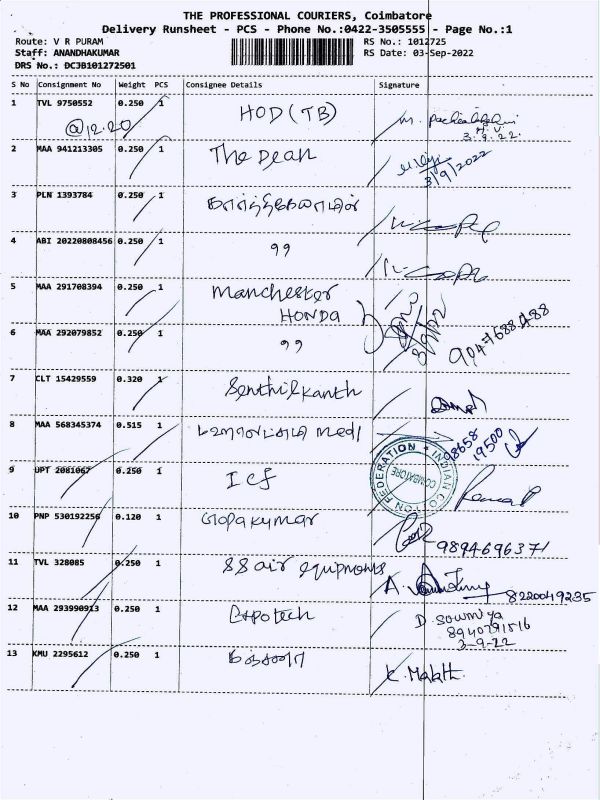 THE PROFESSIONAL COURIERS, Coimbatore
Delivery Runsheet - PCS - Phone No.:0422-3505555 - Page No.:1
Route: V R PURAM
RS No.: 1012725
Staff: ANANDHAKUMAR
RS Date: 03-Sep-2022
DRS No.: DCJB101272501
S No Consignment No Weight PCS Consignee Details Signature
1 TVL 9750552 0.250 1 HOD (TB)
@12.20
3.9.22
2 MAA 941213305 0.250 1 The Dean
3/9/2022
3 PLN 1393784 0.250 1
4 ABI 20220808456 0.250 1 99
5 MAA 291708394 0.250 1 Manchester
HONDA
3/9/22
6 MAA 292079852 0.250 1 99
9047688488
7 CLT 15429559 0.320 1 Senthilkanth
8 MAA 568345374 0.515 1 medl
98658
19500
INDIAN COTTON FEDERATION
COIMBATORE
9 UPT 2081067 0.250 1 Icf
10 PNP 530192256 0.120 1 Gopakumar
9894696371
11 TVL 328085 0.250 1 SS air equipments
8220049235
12 MAA 293990913 0.250 1 Expotech D. Sowmiya
8940791516
3-9-22
13 KMU 2295612 0.250 1 K. Malath